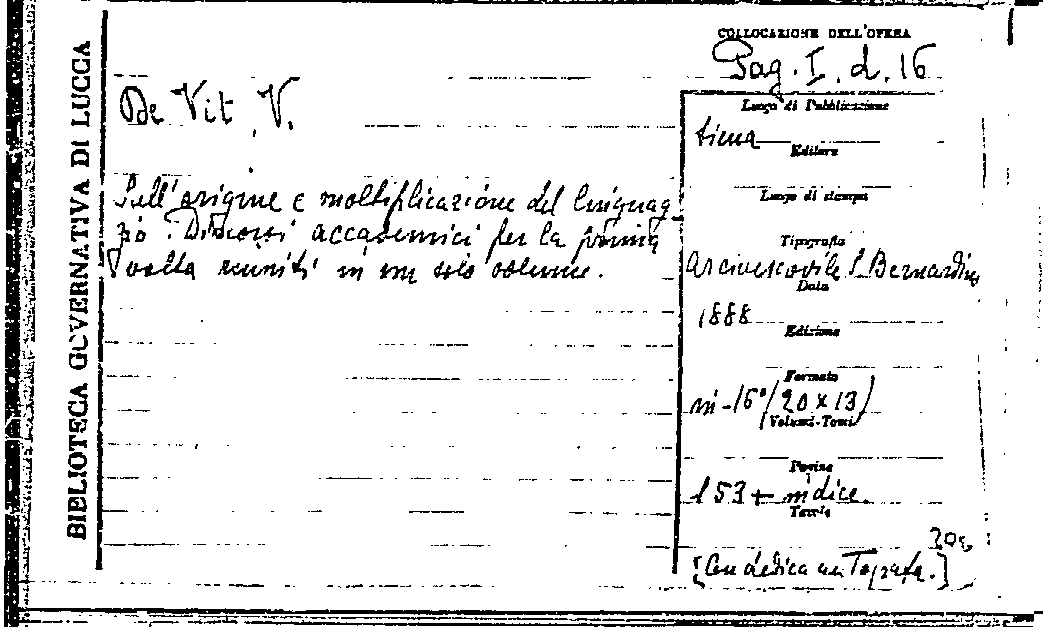 BIBLIOTECA GOVERNATIVA DI LUCCA
COLLOCAZIONE DELL'OPERA
Pag. I. d. 16
De Vit, V.
Luogo di Pubblicazione
Siena
Editore
Sull'origine e moltiplicazione del linguag-
gio. Discorsi accademici per la prima
volta riuniti in un solo volume.
Luogo di stampa
Tipografia
Arcivescovile S. Bernardino
Data
1888
Edizione
Formato
in-16° (20 x 13)
Volumi-Tomi
Pagine
153 + indice.
Tavole
[Con dedica